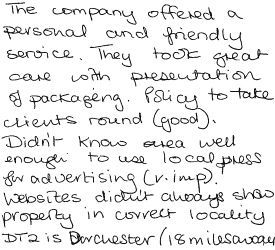 The company offered a
personal and friendly
service. They took great
care with presentation
of packaging. Policy to take
clients round (good).
Didn't know area well
enough to use local press
for advertising (v. imp).
Websites didn't always show
property in correct locality
DT2 is Dorchester (18 miles away